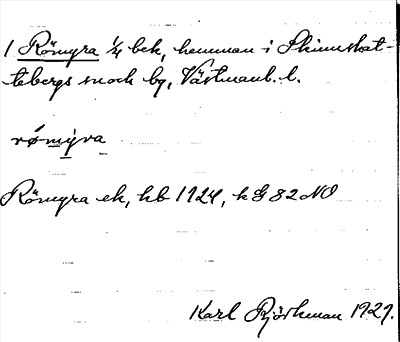 1 Römyra 1/4 bek, hemman i Skinnskat-
tebergs snock bg, Västmanl. l.
römyra
Römyra ek, hb 1924, k G 82 NO
Karl Björkman 1929.